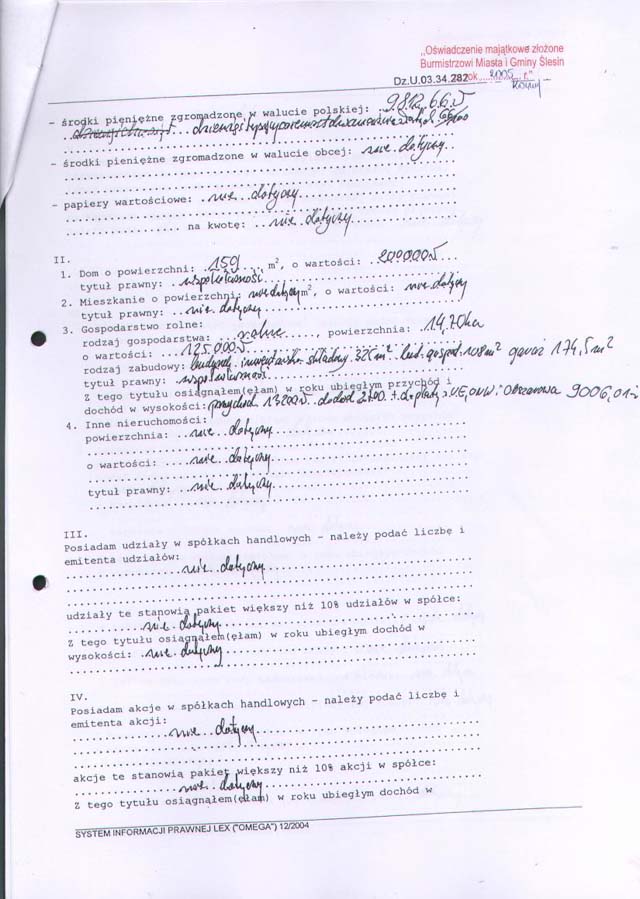 „Oświadczenie majątkowe złożone
Burmistrzowi Miasta i Gminy Ślesin
Dz.U.03.34.282 ok. 2005 r."
- środki pieniężne zgromadzone w walucie polskiej: 9.812,66
dziewięć tysięcy osiemset dwanaście 66/100
- środki pieniężne zgromadzone w walucie obcej: nie dotyczy
- papiery wartościowe: nie dotyczy
na kwotę: nie dotyczy
II.
1. Dom o powierzchni: 159 m², o wartości: 200000
tytuł prawny: współwłasność
2. Mieszkanie o powierzchni: nie dotyczy m², o wartości: nie dotyczy
tytuł prawny: nie dotyczy
3. Gospodarstwo rolne:
rodzaj gospodarstwa: rolne, powierzchnia: 14,20ha
o wartości: 125.000
rodzaj zabudowy: budynek inwentarsko składowy 326m² bud. gospod. 108m² garaż 174,5m²
tytuł prawny: współwłasność
Z tego tytułu osiągnąłem(ęłam) w roku ubiegłym przychód i
dochód w wysokości: przychód 13200 dochód 2400 + dopłaty z UE, ONW i Obszarowa 9006,01
4. Inne nieruchomości:
powierzchnia: nie dotyczy
o wartości: nie dotyczy
tytuł prawny: nie dotyczy
III.
Posiadam udziały w spółkach handlowych - należy podać liczbę i
emitenta udziałów:
nie dotyczy
udziały te stanowią pakiet większy niż 10% udziałów w spółce:
nie dotyczy
Z tego tytułu osiągnąłem(ęłam) w roku ubiegłym dochód w
wysokości: nie dotyczy
IV.
Posiadam akcje w spółkach handlowych - należy podać liczbę i
emitenta akcji:
nie dotyczy
akcje te stanowią pakiet większy niż 10% akcji w spółce:
nie dotyczy
Z tego tytułu osiągnąłem(ęłam) w roku ubiegłym dochód w
SYSTEM INFORMACJI PRAWNEJ LEX ("OMEGA") 12/2004